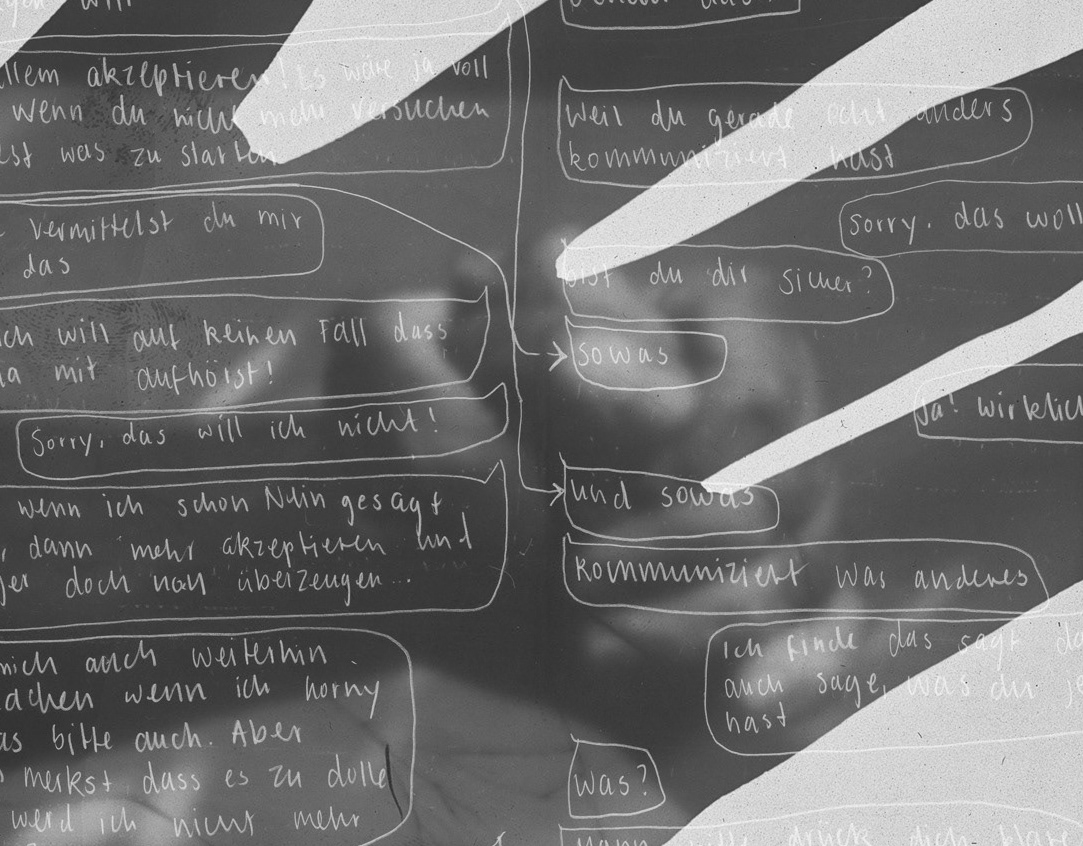 will
allem akzeptieren! Es wäre ja voll
wenn du nicht mehr versuchen
was zu starten
vermittelst du mir
das
ich will auf keinen Fall dass
mit aufhörst!
Sorry, das will ich nicht!
wenn ich schon Nein gesagt
, dann mehr akzeptieren und
doch noch überzeugen...
mich auch weiterhin
wenn ich horny
bitte auch. Aber
merkst dass es zu dolle
werd ich nicht mehr
Weil du gerade echt anders
kommuniziert hast
Sorry. das woll
bist du dir sicher?
sowas
Ja! wirklich
und sowas
kommuniziert was anderes
Ich finde das sagt da
auch sage, was du je
hast
was?
Mann bitte drück dich klare